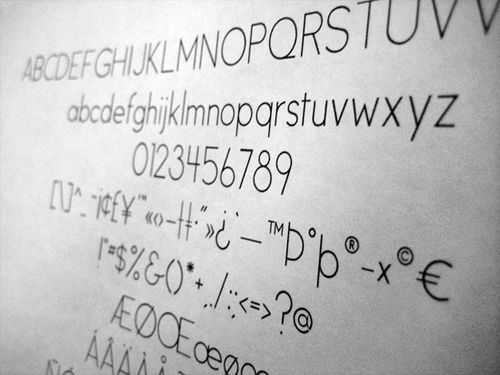 ABCDEFGHIJKLMNOPQRSTUV
abcdefghijklmnopqrstuvwxyz
0123456789
[\]^_¯¡¢£¥¨"«‹›–†‡·”»¿˙`—™Þ°þ®-×©€
!"=$%&()*+,./:;<=>?@
ÆØŒæøœ
ÁÂÄÀÅ